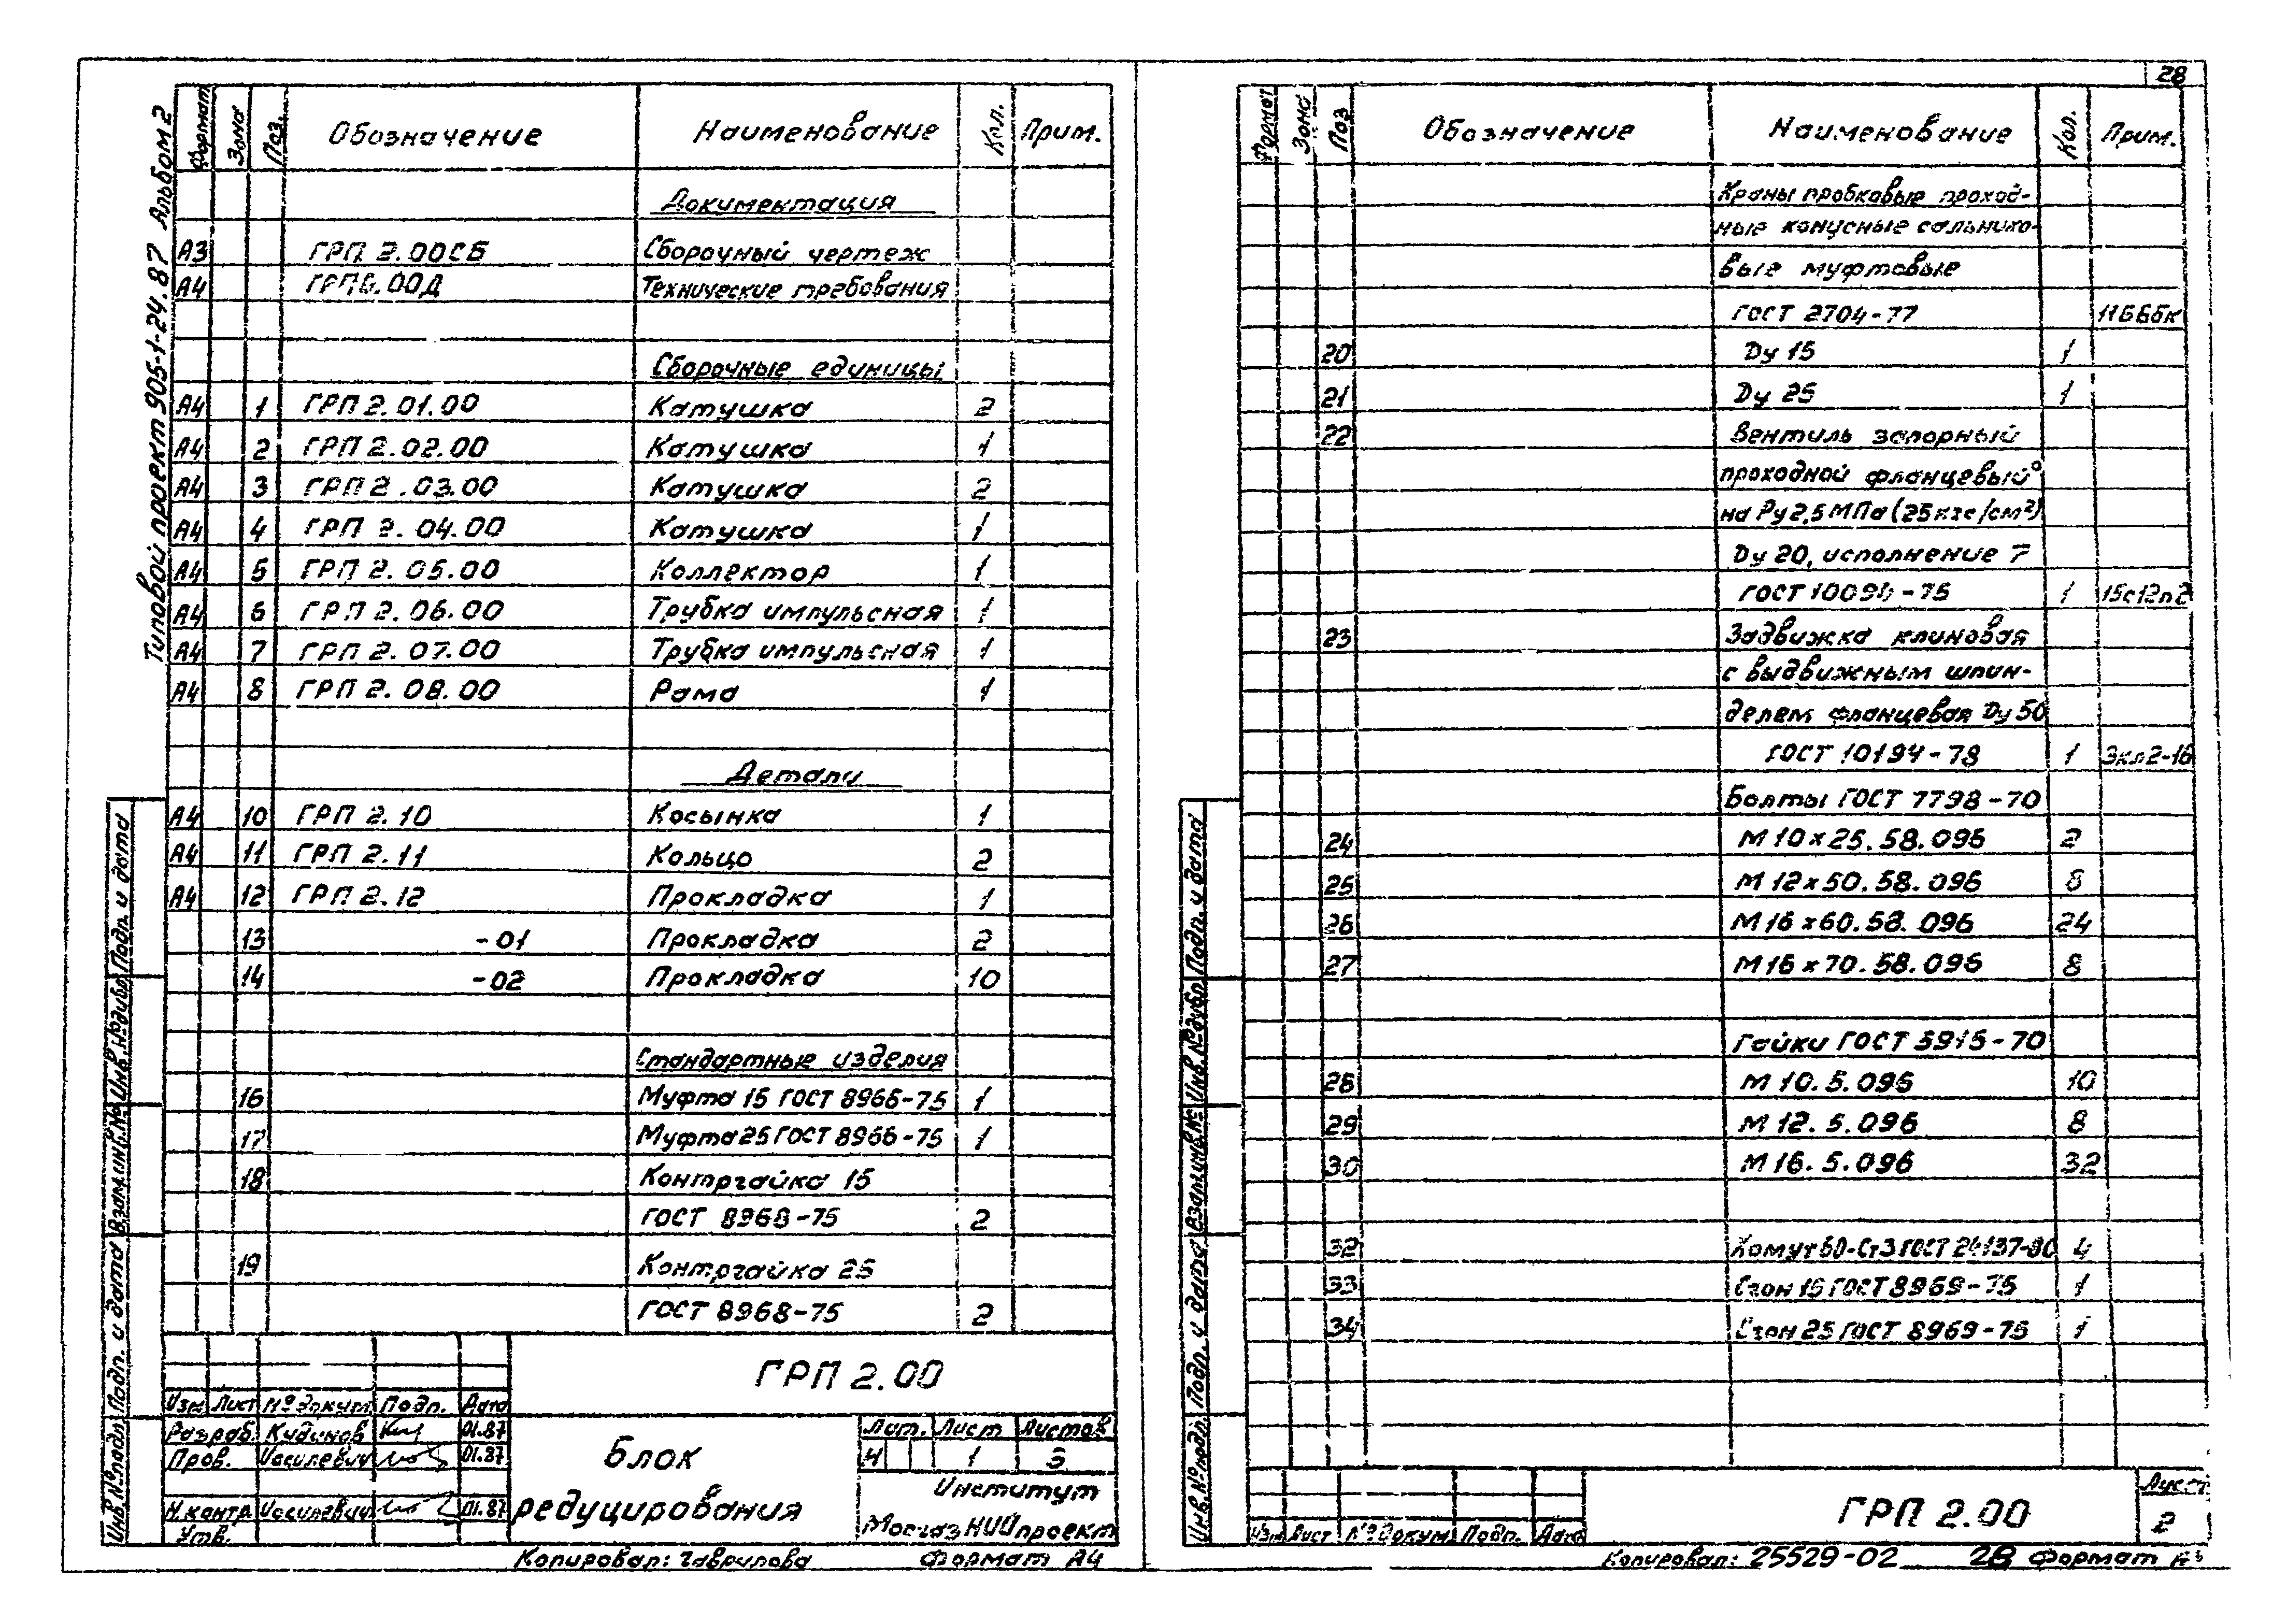 28
Типовой проект 905-1-24.87 Альбом 2
Формат Зона Поз. Обозначение Наименование Кол. Прим.
Документация
А3 ГРП 2.00СБ Сборочный чертеж
А4 ГРП6.00Д Технические требования
Сборочные единицы
А4 1 ГРП 2.01.00 Катушка 2
А4 2 ГРП 2.02.00 Катушка 1
А4 3 ГРП 2.03.00 Катушка 2
А4 4 ГРП 2.04.00 Катушка 1
А4 5 ГРП 2.05.00 Коллектор 1
А4 6 ГРП 2.06.00 Трубка импульсная 1
А4 7 ГРП 2.07.00 Трубка импульсная 1
А4 8 ГРП 2.08.00 Рама 1
Детали
А4 10 ГРП 2.10 Косынка 1
А4 11 ГРП 2.11 Кольцо 2
А4 12 ГРП 2.12 Прокладка 1
13 -01 Прокладка 2
14 -02 Прокладка 10
Стандартные изделия
16 Муфта 15 ГОСТ 8966-75 1
17 Муфта 25 ГОСТ 8966-75 1
18 Контргайка 15
ГОСТ 8968-75 2
19 Контргайка 25
ГОСТ 8968-75 2
Инв.№подл. Подп. и дата Взам.инв.№ Инв.№дубл. Подп. и дата
ГРП 2.00
Изм Лист №докум Подп. Дата
Разраб. 01.87
Пров. 01.87
Н.контр. 01.87
Утв.
Блок
редуцирования
Лит. Лист Листов
И 1 3
Институт
МосгазНИИпроект
Копировал: Гаврилова Формат А4
Формат Зона Поз Обозначение Наименование Кол. Прим.
Краны пробковые проход-
ные конусные сальнико-
вые муфтовые
ГОСТ 2704-77 11Б6бк
20 Ду 15 1
21 Ду 25 1
22 Вентиль запорный
проходной фланцевый
на Ру 2,5 МПа (25 кгс/см²)
Ду 20, исполнение 7
ГОСТ -75 1
23 Задвижка клиновая
с выдвижным шпин-
делем фланцевая Ду 50
ГОСТ 10194-78 1 Зкл2-16
Болты ГОСТ 7798-70
24 М 10×25.58.096 2
25 М 12×50.58.096 8
26 М 16×60.58.096 24
27 М 16×70.58.096 8
Гайки ГОСТ 5915-70
28 М 10.5.096 10
29 М 12.5.096 8
30 М 16.5.096 32
32 Хомут 60-Ст3 ГОСТ 24137-80 4
33 Сгон 15 ГОСТ 8969-75 1
34 Сгон 25 ГОСТ 8969-75 1
Инв.№подл. Подп. и дата Взам.инв.№ Инв.№дубл. Подп. и дата
Изм Лист №докум Подп. Дата
ГРП 2.00
Лист
2
Копировал: 25529-02 28 Формат